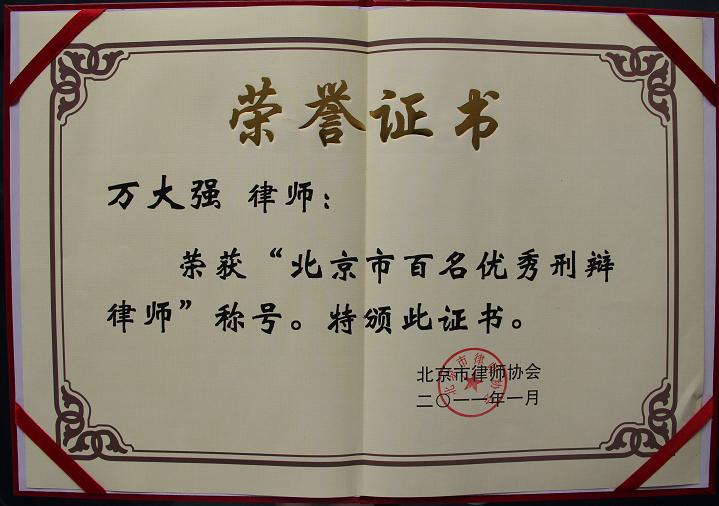 荣誉证书
万大强 律师：
荣获“北京市百名优秀刑辩
律师”称号。特颁此证书。
北京市律师协会
二〇一一年一月
北京市律师协会